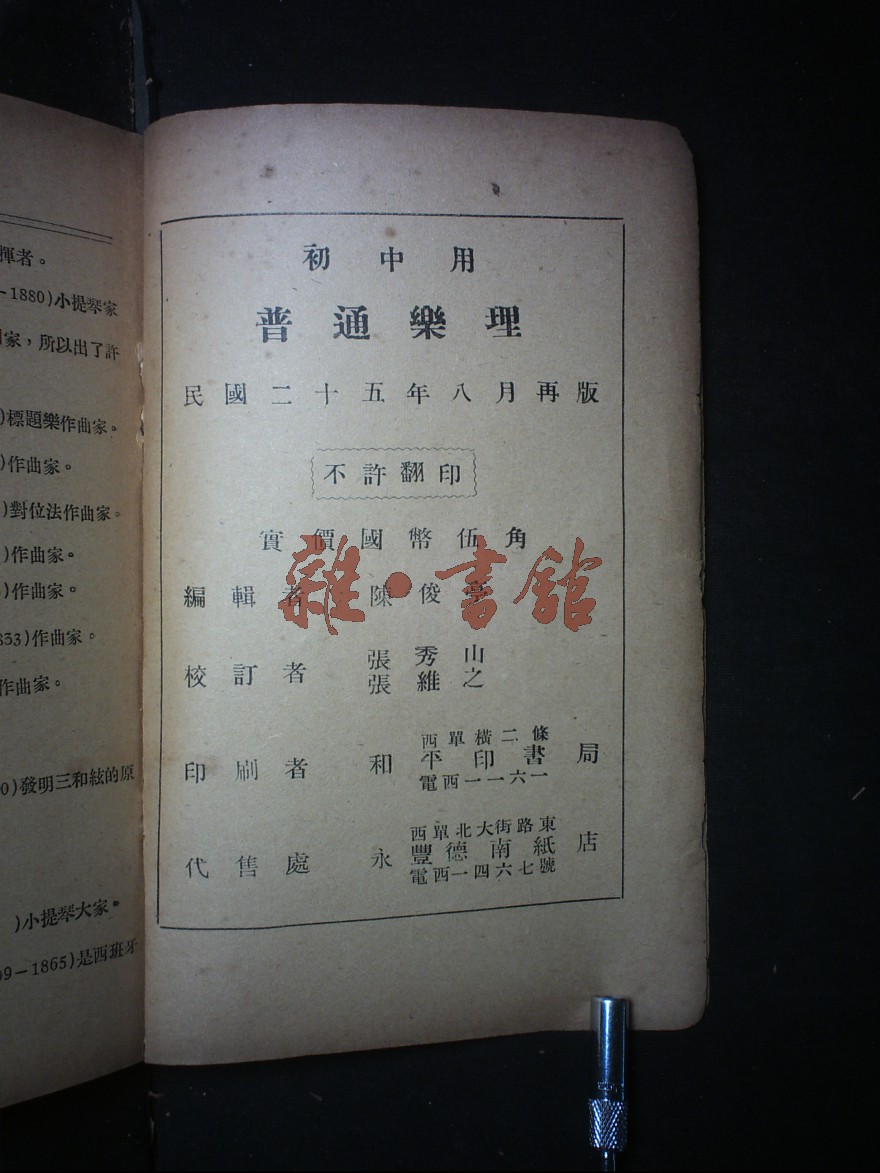 揮者。
-1880)小提琴家
家，所以出了許
)標題樂作曲家。
)作曲家。
)對位法作曲家。
)作曲家。
)作曲家。
833)作曲家。
作曲家。
0)發明三和絃的原
)小提琴大家。
09-1865)是西班牙
初中用
普通樂理
民國二十五年八月再版
不許翻印
實價國幣伍角
編輯者 陳俊
校訂者 張秀山
張維之
印刷者 和平印書局
西單橫二條
電西一一六一
代售處 永豐德南紙店
西單北大街路東
電西一四六七號
雜·書館